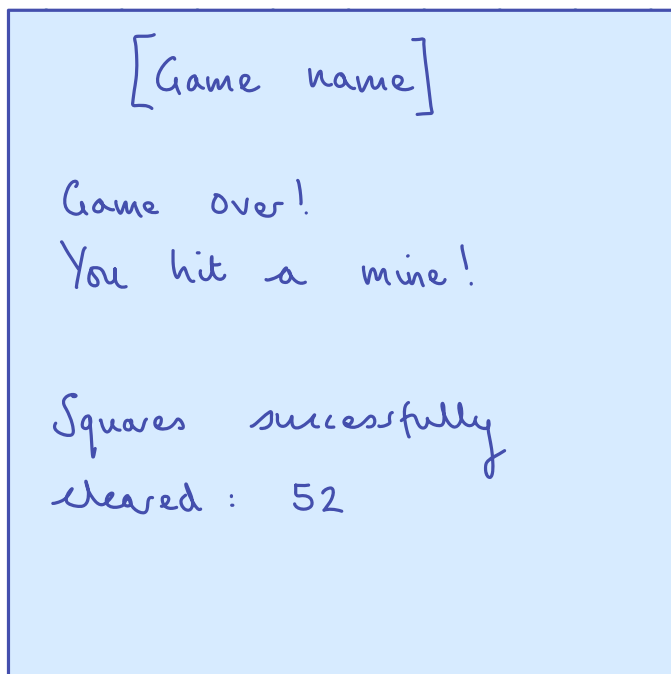 [Game name]
Game over!
You hit a mine!
Squares successfully
cleared: 52